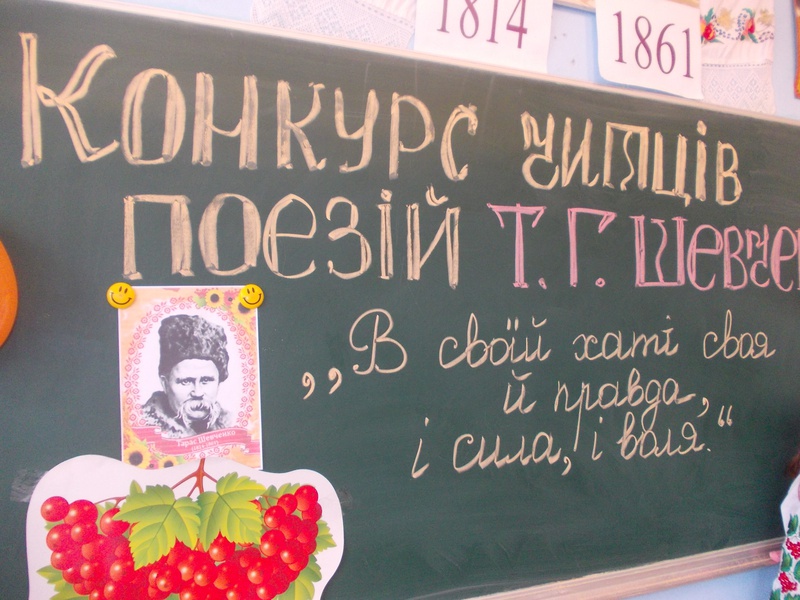 1814
1861
Конкурс читців
поезій Т. Г. Шевчен
,,В своїй хаті своя
й правда,
і сила, і воля."
Тарас Шевченко